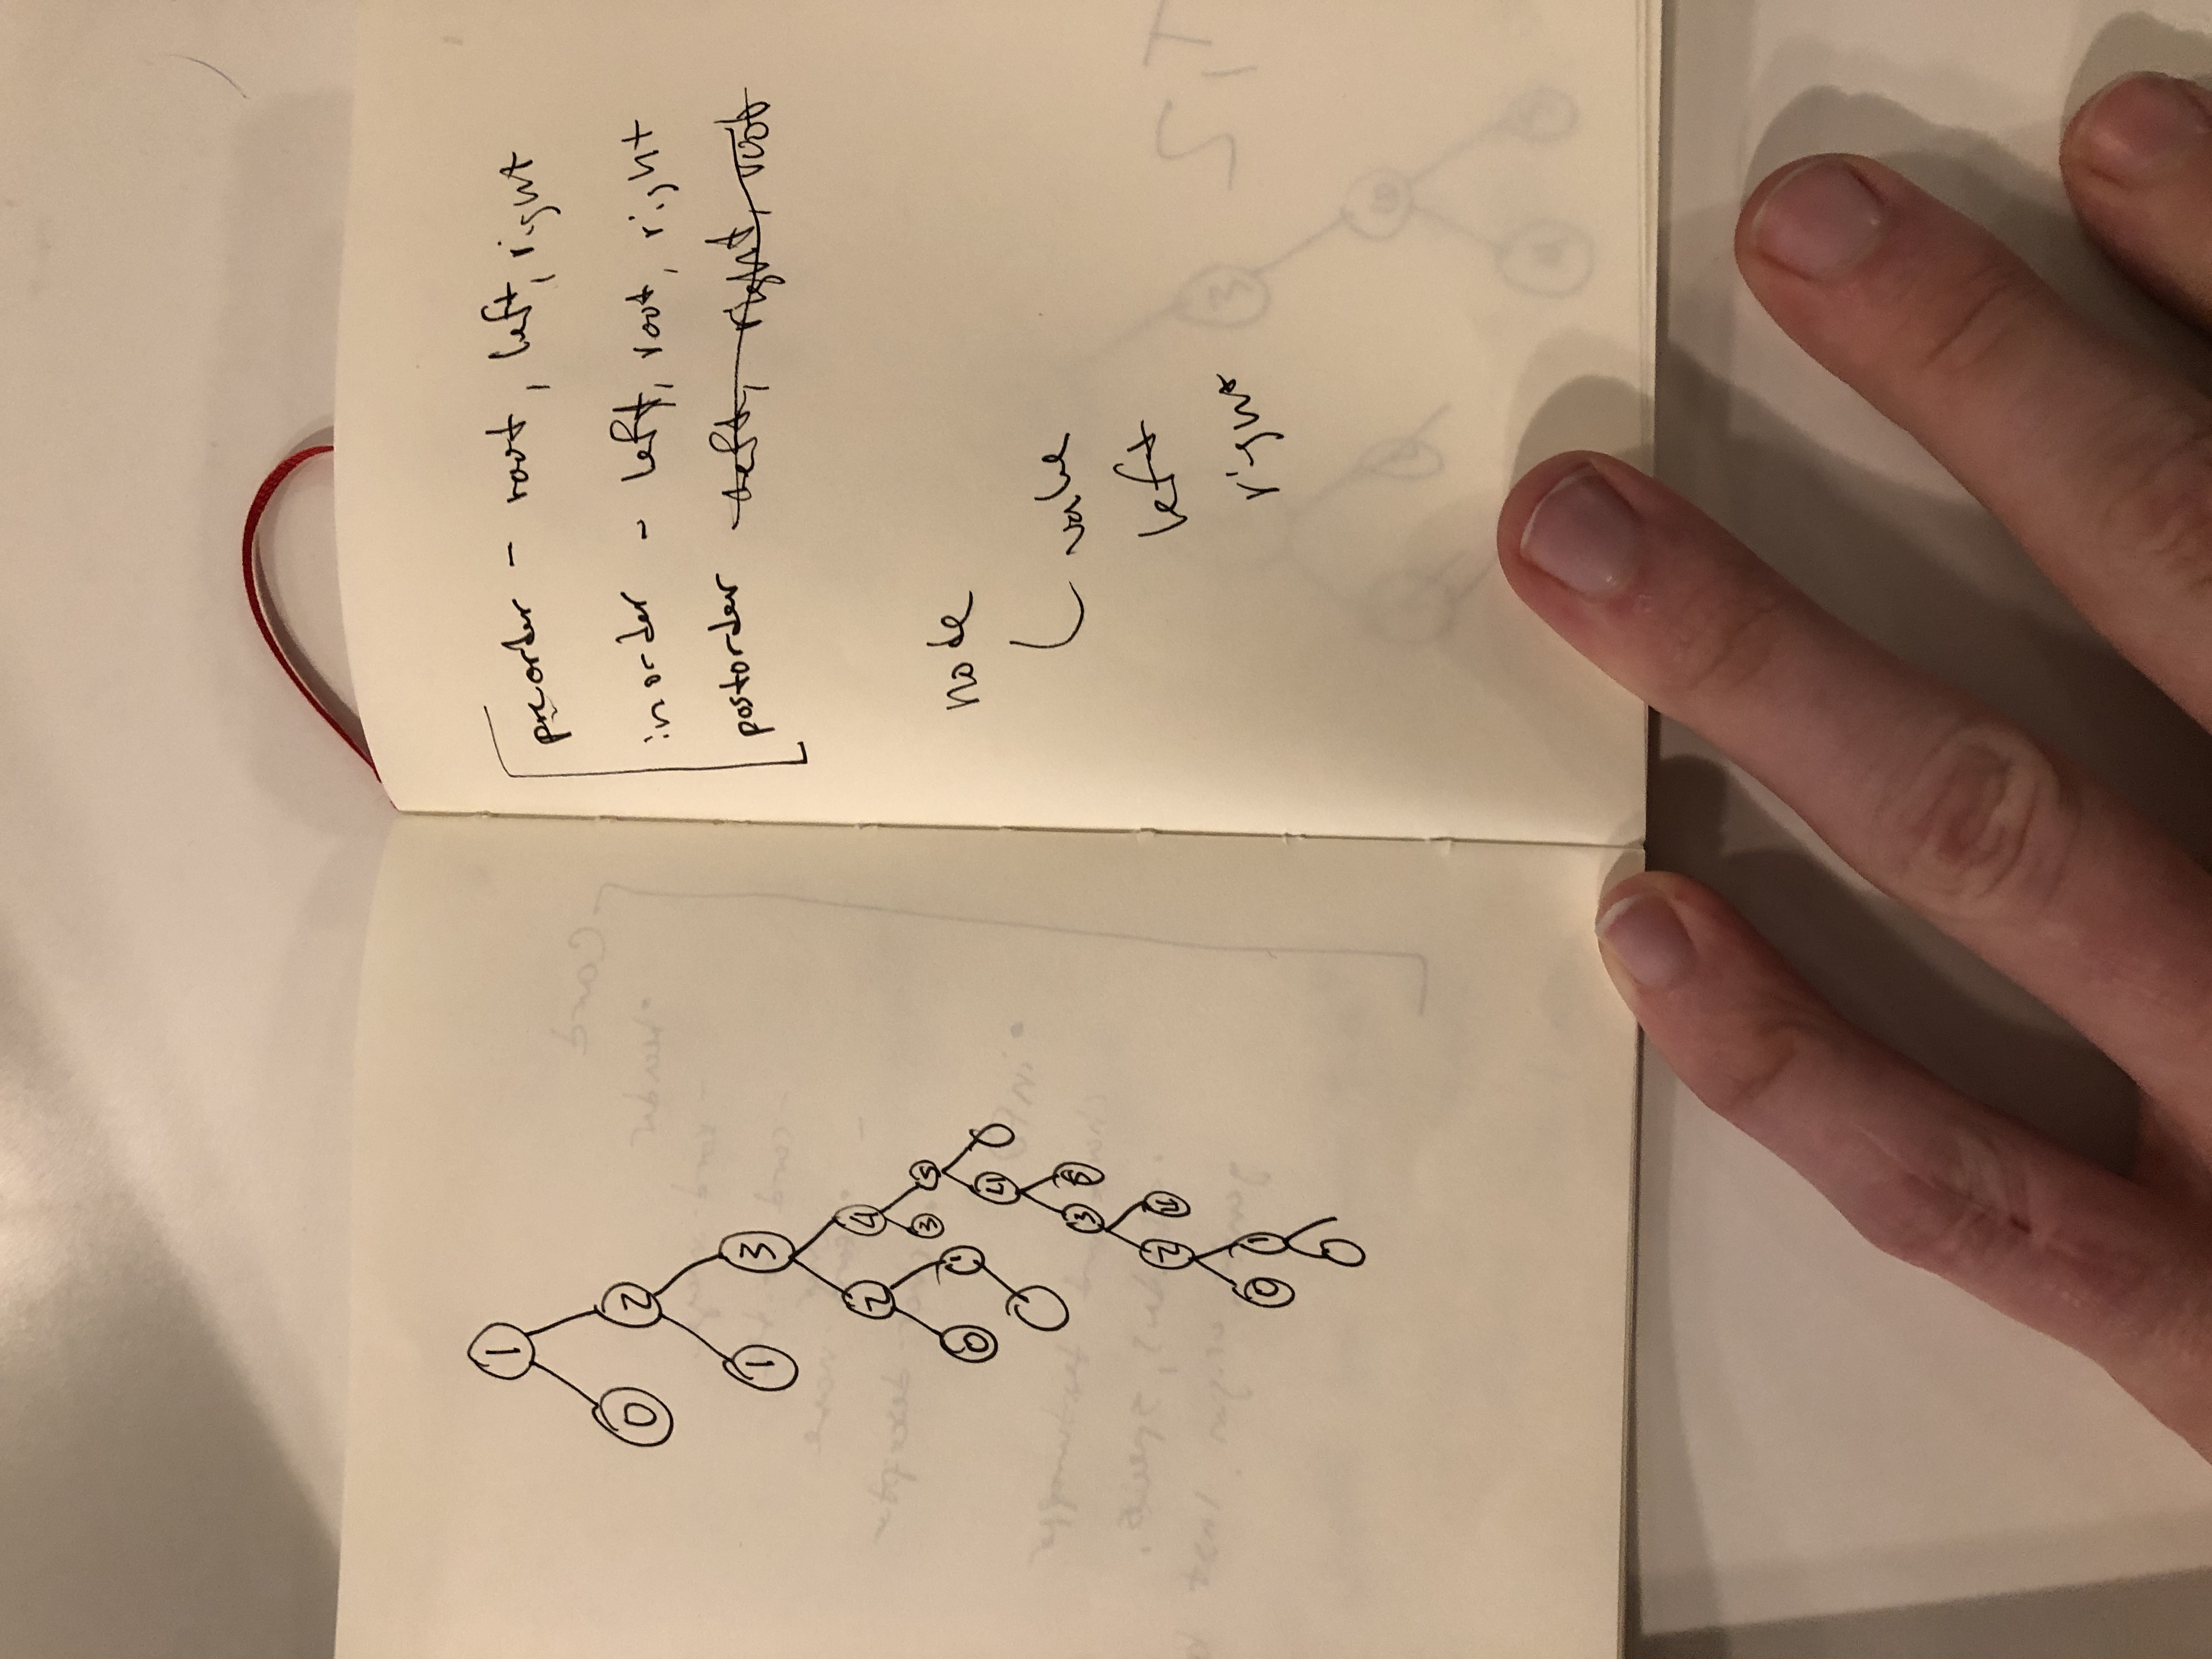 1
0 2
1 3
2 4
3 5
0 1
4
3 5
2 4
0 1
preorder - root, left, right
inorder - left, root, right
postorder left, right, root
node
value
left
right